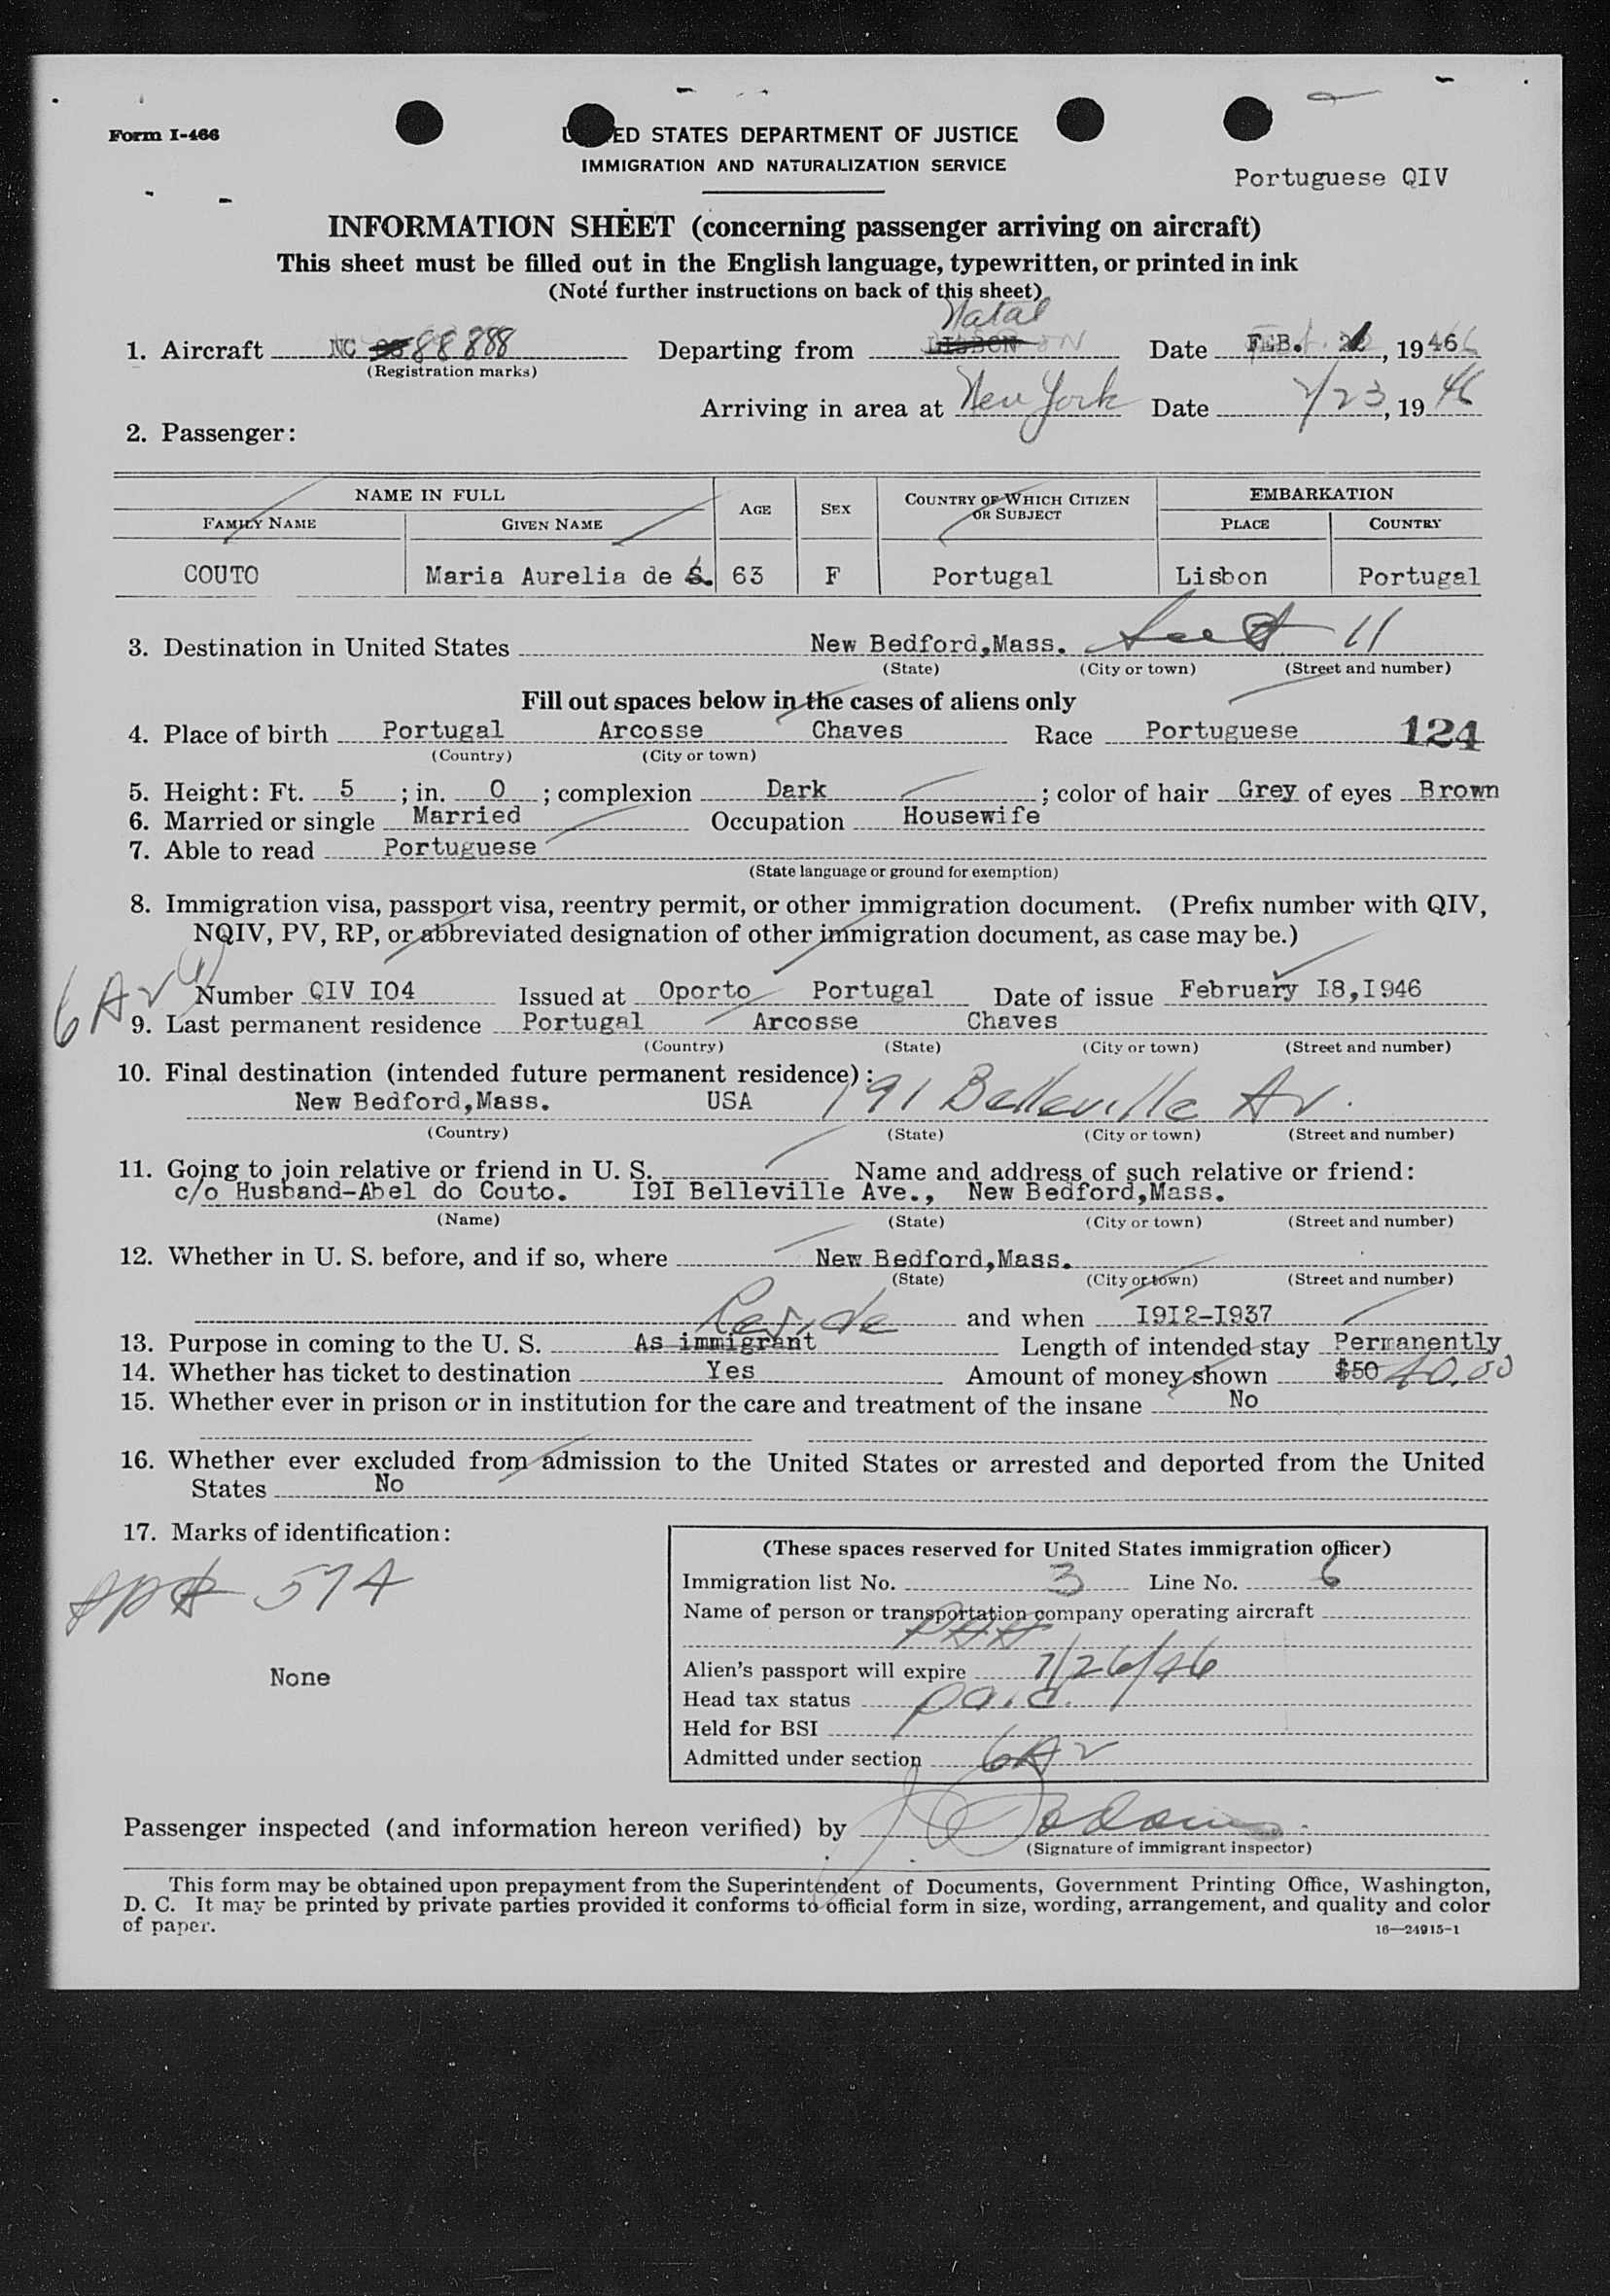 Form I-466
ED STATES DEPARTMENT OF JUSTICE
IMMIGRATION AND NATURALIZATION SERVICE
Portuguese QIV
INFORMATION SHEET (concerning passenger arriving on aircraft)
This sheet must be filled out in the English language, typewritten, or printed in ink
(Note further instructions on back of this sheet)
Natal
1. Aircraft NC 88888 Departing from LISBON Date FEB. , 1946
(Registration marks)
Arriving in area at New York Date 2/23, 1946
2. Passenger:
NAME IN FULL AGE SEX COUNTRY OF WHICH CITIZEN OR SUBJECT EMBARKATION
FAMILY NAME GIVEN NAME PLACE COUNTRY
COUTO Maria Aurelia de S. 63 F Portugal Lisbon Portugal
3. Destination in United States New Bedford,Mass. See # 11
(State) (City or town) (Street and number)
Fill out spaces below in the cases of aliens only
4. Place of birth Portugal Arcosse Chaves Race Portuguese 124
(Country) (City or town)
5. Height: Ft. 5 ; in. 0 ; complexion Dark ; color of hair Grey of eyes Brown
6. Married or single Married Occupation Housewife
7. Able to read Portuguese
(State language or ground for exemption)
8. Immigration visa, passport visa, reentry permit, or other immigration document. (Prefix number with QIV,
NQIV, PV, RP, or abbreviated designation of other immigration document, as case may be.)
6Av Number QIV I04 Issued at Oporto Portugal Date of issue February I8,I946
9. Last permanent residence Portugal Arcosse Chaves
(Country) (State) (City or town) (Street and number)
10. Final destination (intended future permanent residence):
New Bedford,Mass. USA 191 Belleville Av.
(Country) (State) (City or town) (Street and number)
11. Going to join relative or friend in U. S. Name and address of such relative or friend:
c/o Husband-Abel do Couto. I9I Belleville Ave., New Bedford,Mass.
(Name) (State) (City or town) (Street and number)
12. Whether in U. S. before, and if so, where New Bedford,Mass.
(State) (City or town) (Street and number)
Reside and when I9I2-I937
13. Purpose in coming to the U. S. As immigrant Length of intended stay Permanently
14. Whether has ticket to destination Yes Amount of money shown $50 40.00
15. Whether ever in prison or in institution for the care and treatment of the insane No
16. Whether ever excluded from admission to the United States or arrested and deported from the United
States No
17. Marks of identification:
574
None
(These spaces reserved for United States immigration officer)
Immigration list No. 3 Line No. 6
Name of person or transportation company operating aircraft
PAA
Alien's passport will expire 7/26/46
Head tax status paid.
Held for BSI
Admitted under section 6Av
Passenger inspected (and information hereon verified) by
(Signature of immigrant inspector)
This form may be obtained upon prepayment from the Superintendent of Documents, Government Printing Office, Washington,
D. C. It may be printed by private parties provided it conforms to official form in size, wording, arrangement, and quality and color
of paper.
16—24915-1